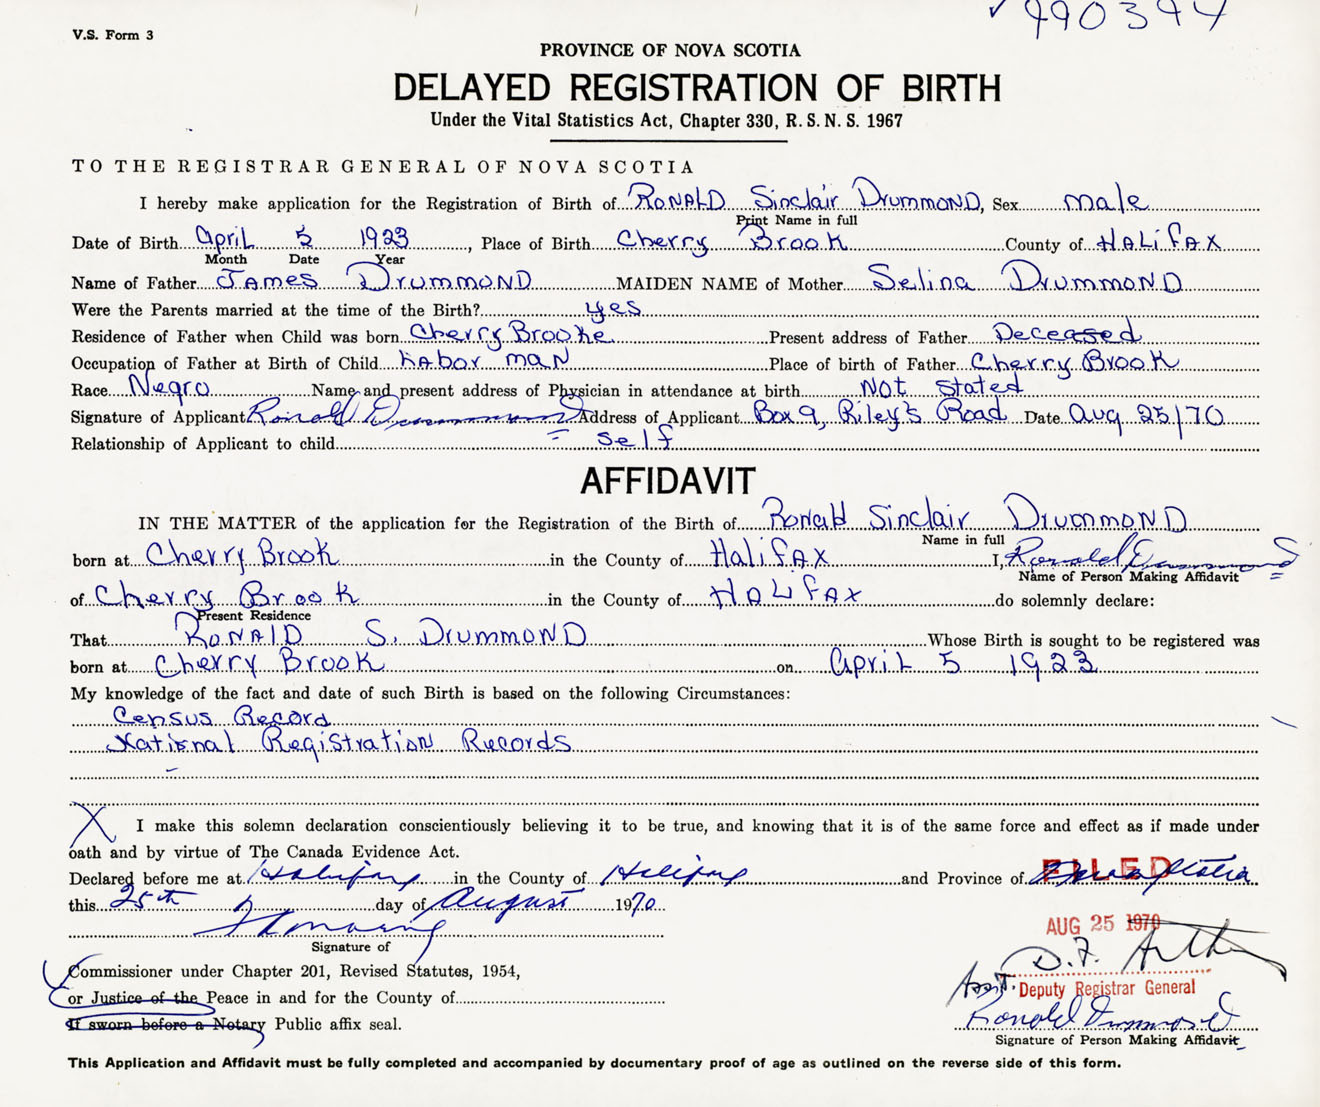 990394
V.S. Form 3
PROVINCE OF NOVA SCOTIA
DELAYED REGISTRATION OF BIRTH
Under the Vital Statistics Act, Chapter 330, R.S.N.S. 1967
TO THE REGISTRAR GENERAL OF NOVA SCOTIA
I hereby make application for the Registration of Birth of RONALD Sinclair Drummond, Sex male
Print Name in full
Date of Birth April 5 1923, Place of Birth Cherry Brook County of HALIFAX
Month Date Year
Name of Father JAMES Drummond MAIDEN NAME of Mother Selina Drummond
Were the Parents married at the time of the Birth? yes
Residence of Father when Child was born Cherry Brooke Present address of Father Deceased
Occupation of Father at Birth of Child Labor man Place of birth of Father Cherry Brook
Race Negro Name and present address of Physician in attendance at birth Not stated
Signature of Applicant Ronald Drummond Address of Applicant Box 9, Riley's Road Date Aug 25/70
Relationship of Applicant to child self
AFFIDAVIT
IN THE MATTER of the application for the Registration of the Birth of Ronald Sinclair Drummond
Name in full
born at Cherry Brook in the County of Halifax I, Ronald Drummond
Name of Person Making Affidavit
of Cherry Brook in the County of HALIFAX do solemnly declare:
Present Residence
That RONALD S. Drummond Whose Birth is sought to be registered was
born at Cherry Brook on April 5 1923
My knowledge of the fact and date of such Birth is based on the following Circumstances:
Census Record
National Registration Records
X I make this solemn declaration conscientiously believing it to be true, and knowing that it is of the same force and effect as if made under
oath and by virtue of The Canada Evidence Act.
Declared before me at Halifax in the County of Halifax and Province of Nova Scotia
FILED
this 25th day of August 1970
AUG 25 1970
Signature of
D.F.
Commissioner under Chapter 201, Revised Statutes, 1954,
Asst. Deputy Registrar General
or Justice of the Peace in and for the County of
Ronald Drummond
If sworn before a Notary Public affix seal.
Signature of Person Making Affidavit
This Application and Affidavit must be fully completed and accompanied by documentary proof of age as outlined on the reverse side of this form.